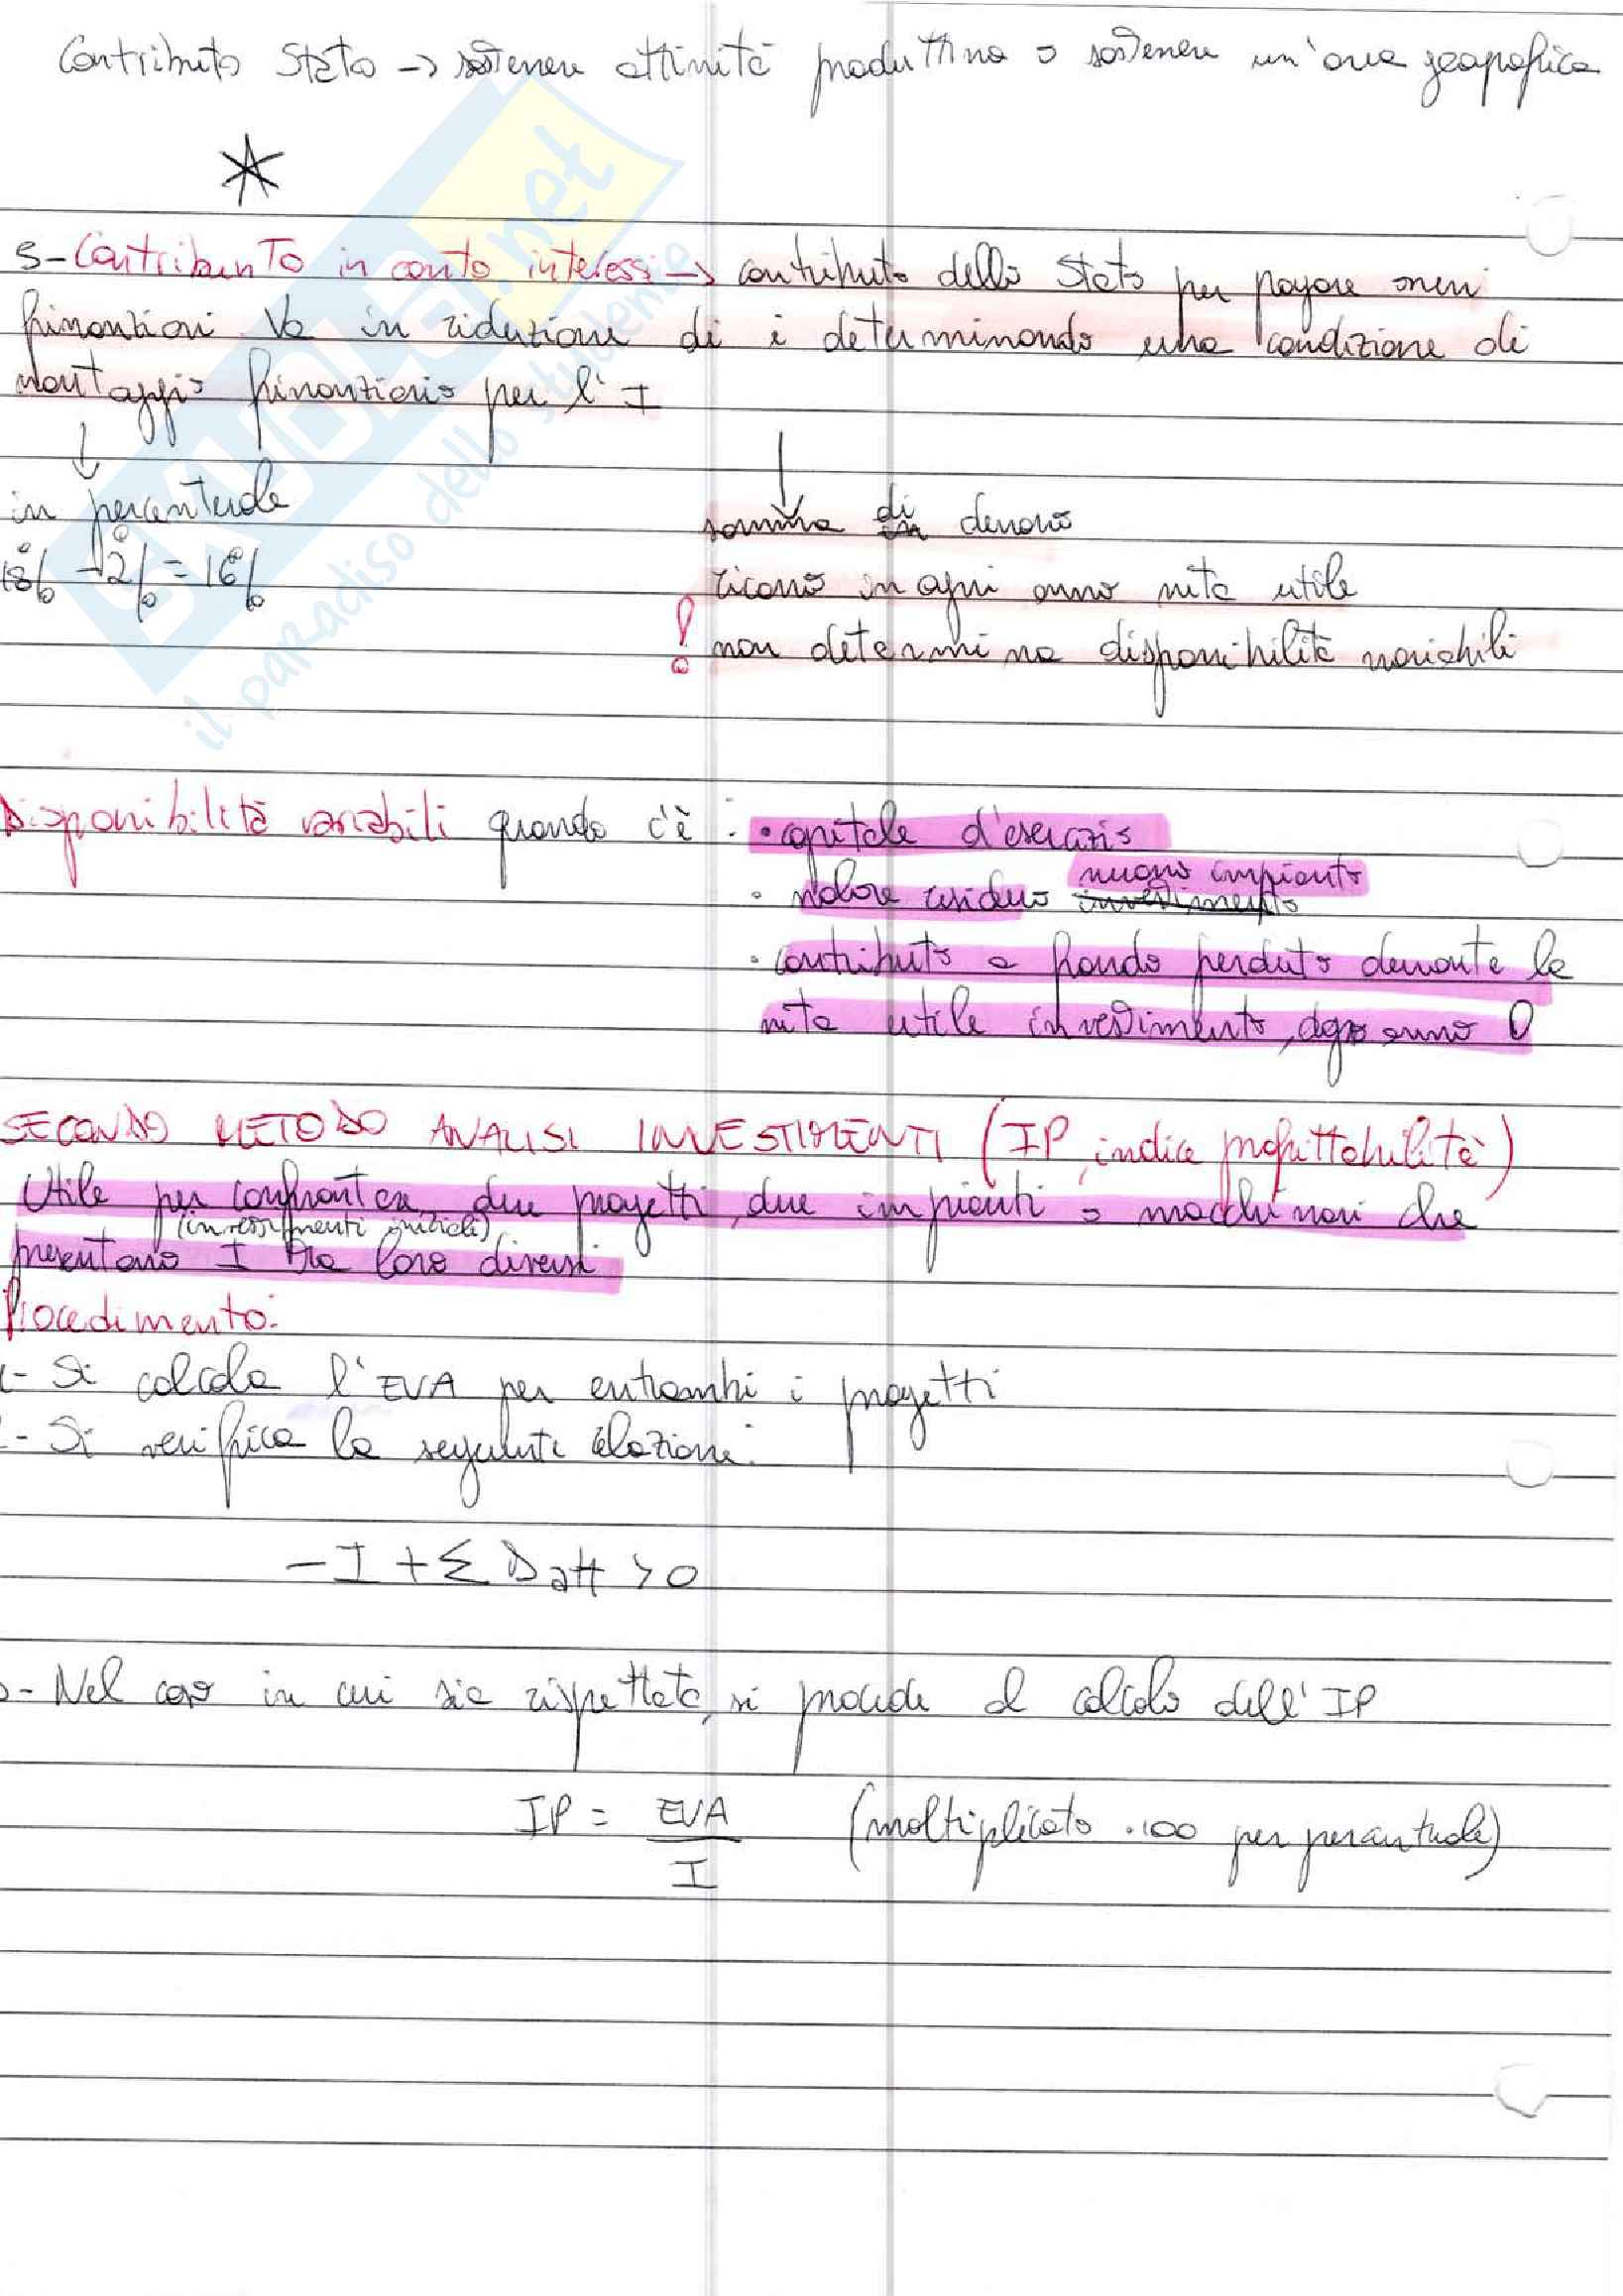 Contributo Stato → sostenere attività produttiva o sostenere un'area geografica
*
5-Contributo in conto interessi → contributo dello Stato per pagare oneri
finanziari Va in riduzione di i determinando una condizione di
vantaggio finanziario per l'I
↓ ↓
in percentuale
18% - 2% = 16%
somma di denaro
ricavo in ogni anno vita utile
! non determina disponibilità variabili
Disponibilità variabili quando c'è : • capitale d'esercizio
• valore residuo investimento nuovo impianto
• contributo a fondo perduto durante la
vita utile investimento, dopo anno 0
SECONDO METODO ANALISI INVESTIMENTI (IP, indice profittabilità)
Utile per confrontare due progetti, due impianti o macchinari che
(investimenti iniziali)
presentano I tra loro diversi
Procedimento:
1- Si calcola l'EVA per entrambi i progetti
2- Si verifica la seguente relazione:
-I + Σ Datt > 0
3- Nel caso in cui sia rispettata, si procede al calcolo dell'IP
IP = EVA / I (moltiplicato .100 per percentuale)
SKUOLA.net
il paradiso dello studente